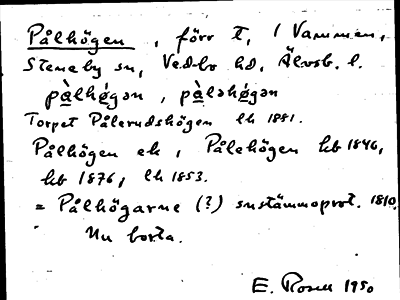 Pålhögen, förr T, i Vammen,
Steneby sn, Vedbo hd, Älvsb. l.
pàlhø̀gən, pàləhø̀gən
Torpet Pålerudshögen lh 1881.
Pålhögen ek, Pålehögen hb 1846,
hb 1876, lh 1853.
= Pålhögarne (?) snstämmoprot. 1810.
Nu borta.
E. Rosell 1950